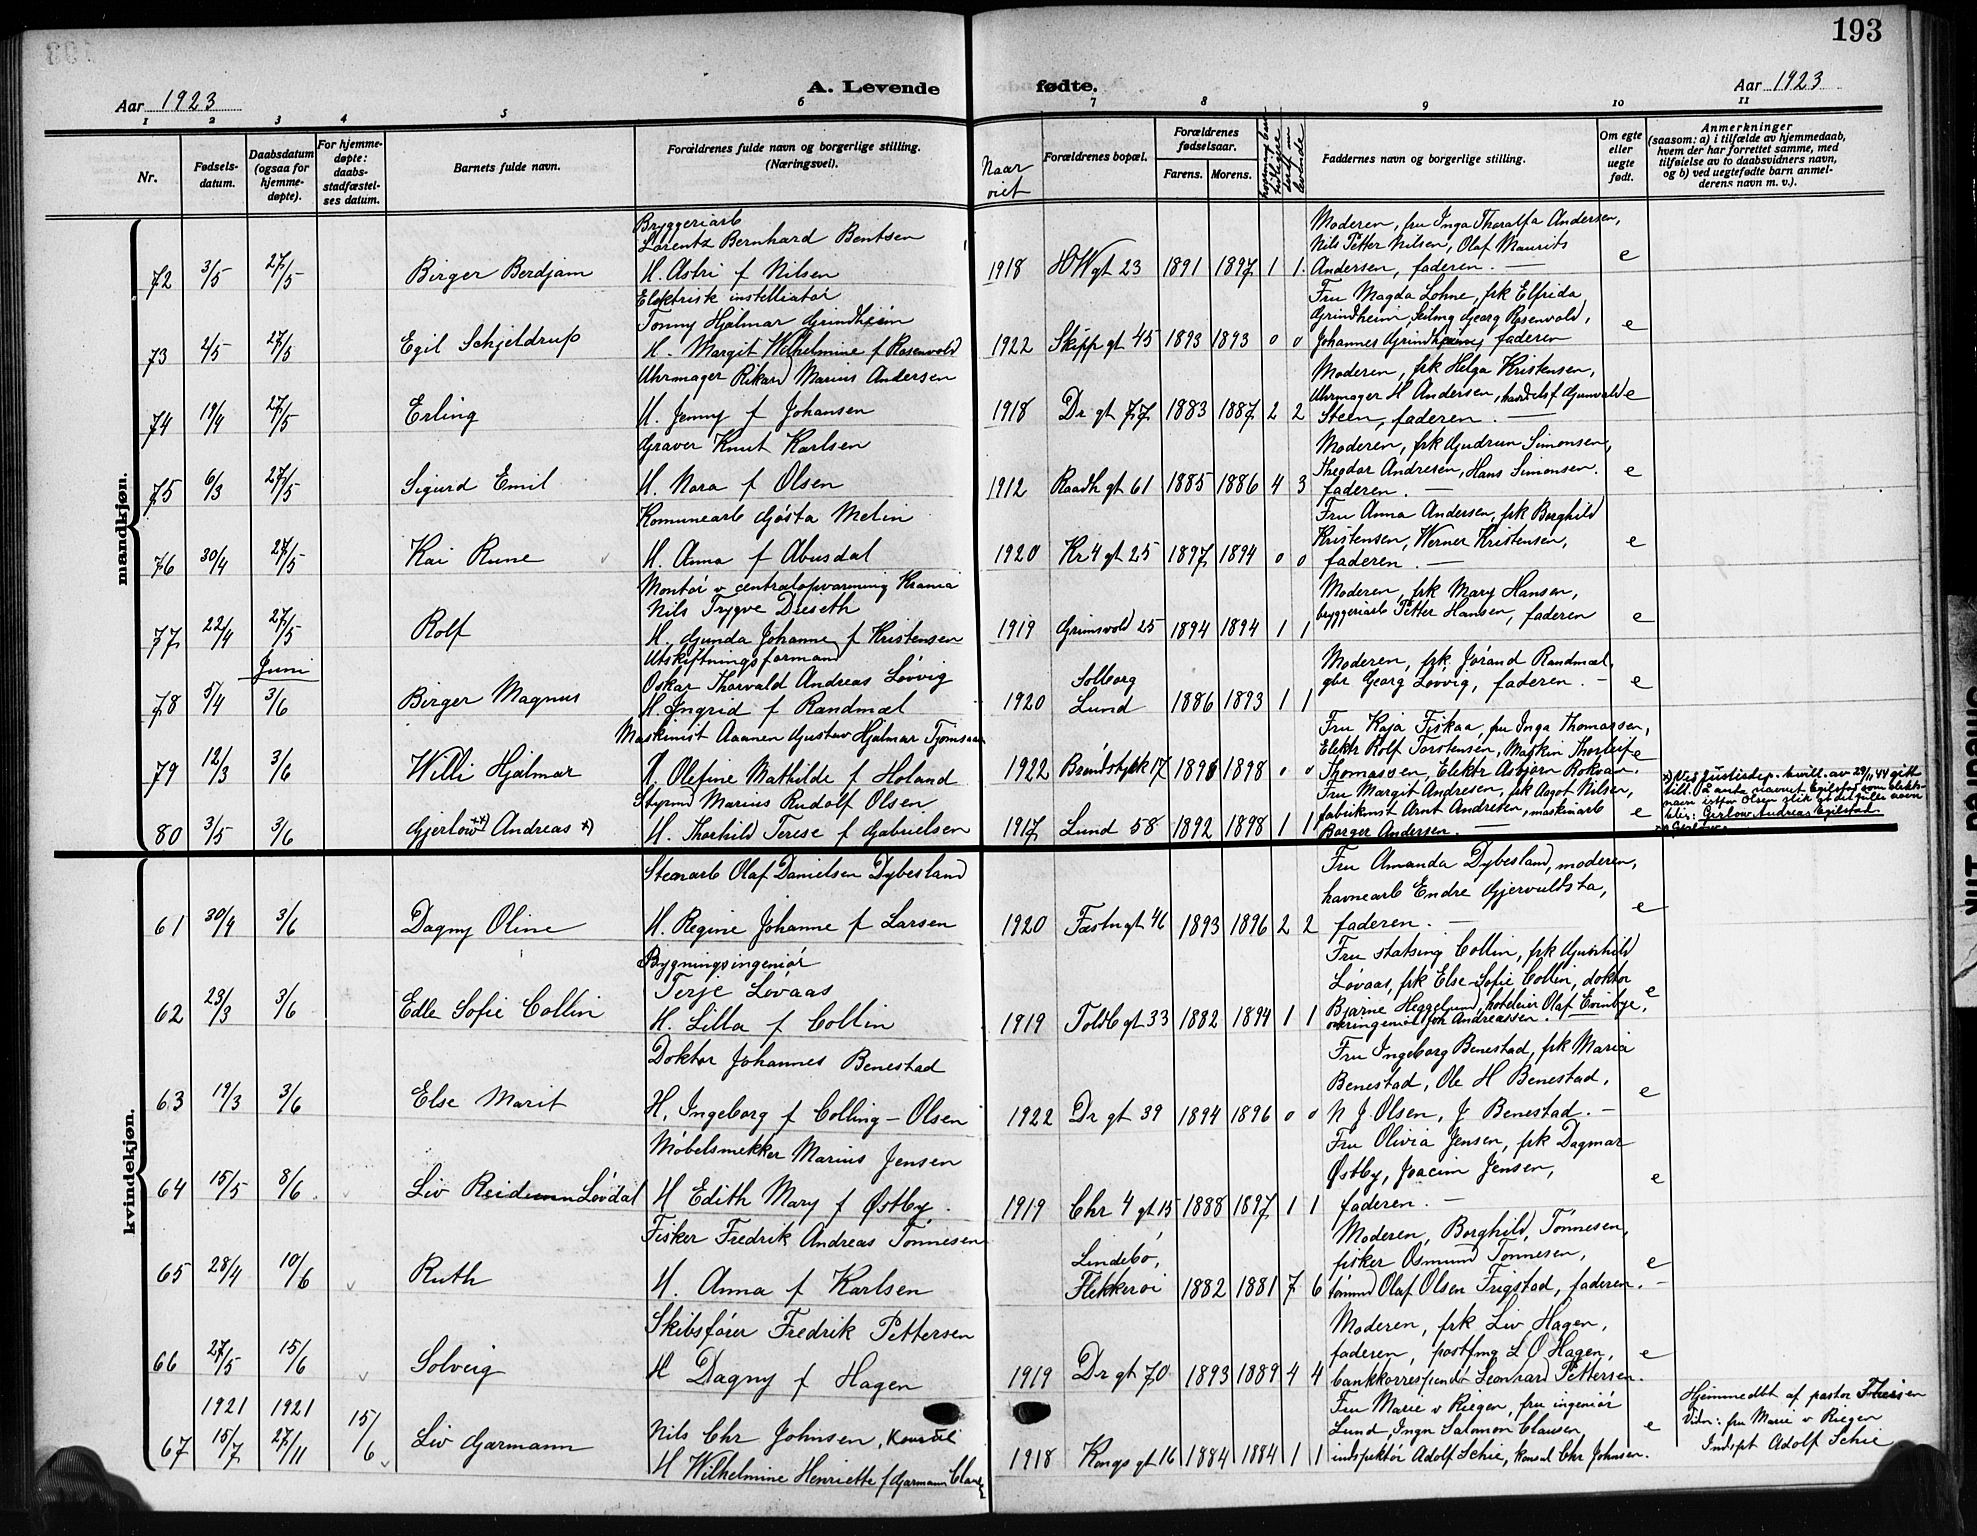 193
Aar 1923
A. Levende fødte.
Aar 1923
1 2 3 4 5 6 7 8 9 10 11
Nr.
Fødsels-
datum.
Daabsdatum
(ogsaa for
hjemme-
døpte).
For hjemme-
døpte:
daabs-
stadfæstel-
ses datum.
Barnets fulde navn.
Forældrenes fulde navn og borgerlige stilling.
(Næringsvei).
Naar
viet
Forældrenes bopæl.
Forældrenes
fødselsaar.
Farens. Morens.
Faddernes navn og borgerlige stilling.
Om egte
eller
uegte
født.
Anmerkninger
(saasom: a) i tilfælde av hjemmedaab,
hvem der har forrettet samme, med
tilføielse av to daabsvidners navn,
og b) ved uegtefødte barn anmel-
derens navn m. v.).
mandkjøn.
Bryggeriarb
Lorentz Bernhard Bentsen
72 3/5 27/5 Birger Berdjam H. Astri f Nilsen 1918 HWgt 23 1891 1897 1 1
Moderen, fru Inga Thoralfa Andersen,
Nils Petter Nilsen, Olaf Maurits
Andersen, faderen. — e
Elektrisk installatør
Tonny Hjalmar Grindheim
73 2/5 27/5 Egil Schjeldrup H. Margit Wilhelmine f Rosenvold 1922 Skipp gt 45 1893 1893 0 0
Fru Magda Lohne, frk Elfrida
Grindheim, Georg Rosenvold,
Johannes Grindheim, faderen e
Uhrmager Rikard Marius Andersen
74 19/4 27/5 Erling H. Jenny f Johansen 1918 Dr gt 77 1883 1887 2 2
Moderen, frk Helga Kristensen,
Uhrmager H Andersen, handelsf Gunvald e
Steen, faderen. —
Graver Knut Karlsen
75 6/3 27/5 Sigurd Emil H. Nora f Olsen 1912 Raadh gt 61 1885 1886 4 3
Moderen, frk Gudrun Simonsen,
Theodor Andresen, Hans Simonsen. e
faderen. —
Komunearb Gøsta Melin
76 30/4 27/5 Kai Rune H. Anna f Abusdal 1920 Kr 4 gt 25 1897 1894 0 0
Fru Anna Andersen, frk Borghild
Kristensen, Werner Kristensen, e
faderen. —
Montør v centralopvarmning Krania
Nils Trygve Dreseth
77 22/4 27/5 Rolf H. Gunda Johanne f Kristensen 1919 Grimsvold 25 1894 1894 1 1
Moderen, frk Mary Hansen,
bryggeriarb Petter Hansen, faderen e
Juni
Utskiftningsformand
Oskar Thorvald Andreas Løvvig
78 5/4 3/6 Birger Magnus H. Ingrid f Randmæl 1920 Solborg Lund 1886 1893 1 1
Moderen, frk. Jørand Randmæl,
gbr Georg Løvvig, faderen. — e
Maskinist Aanen Gustav Hjalmar Tjomsaas
79 12/3 3/6 Willi Hjalmar H. Olefine Mathilde f Holand 1922 Brøndstykk 17 1896 1898 0 0
Fru Kaja Fiskaa, fru Inga Thomassen,
Elektr Rolf Torstensen, Maskin Thorleif e
Thomassen, Elektr Asbjørn Rokvan.
Styrmd Marius Rudolf Olsen
80 3/5 3/6 Gjerlow xx) Andreas x) H. Thorhild Terese f Gabrielsen 1917 Lund 58 1892 1898 1 1
Fru Margit Andresen, frk Aagot Nilsen,
fabrikmst Arnt Andresen, maskinarb e
Borger Andersen. —
x) Ved Justisdep. bevill. av 29/11 44 gitt
till. t å anta navnet Egilstad som slekts-
navn istfor Olsen slik at det fulle navn
blir: Gerlow Andreas Egilstad
kvindekjøn.
Stenarb Olaf Danielsen Dybesland
61 30/4 3/6 Dagny Oline H. Regine Johanne f Larsen 1920 Fæstn gt 46 1893 1896 2 2
Fru Amanda Dybesland, moderen,
havnearb Endre Gjervuldsta,
faderen. — e
Bygningsingeniør
Terje Løvaas
62 23/3 3/6 Edle Sofie Collin H. Lilla f Collin 1919 Toldb gt 33 1882 1894 1 1
Fru Collin, frk Gunhild
Løvaas, frk Else-Sofie Collin, doktor
Bjarne Heggelund, hoteleier Olaf Evinbye, e
Andreassen.
Doktor Johannes Benestad
63 19/3 3/6 Else Marit H. Ingeborg f Colling-Olsen 1922 Dr gt 39 1894 1896 0 0
Fru Ingeborg Benestad, frk Maria
Benestad, Ole H Benestad,
N J Olsen, J Benestad. — e
Møbelsnekker Marius Jensen
64 15/5 8/6 Liv Reidunn Løvdal H Edith Mary f Østby 1919 Chr 4 gt 15 1888 1897 1 1
Fru Olivia Jensen, frk Dagmar
Østby, Joacim Jensen,
faderen. — e
Fisker Fredrik Andreas Tønnesen
65 28/4 10/6 Ruth H. Anna f Karlsen Lindebø, Flekkerøi 1882 1881 7 6
Moderen, Borghild Tønnesen,
fisker Osmund Tønnesen,
tømmd Olaf Olsen Frigstad, faderen. — e
Skibsfører Fredrik Pettersen
66 27/5 15/6 Solveig H Dagny f Hagen 1919 Dr gt 70 1893 1889 4 4
Moderen, frk Liv Hagen,
faderen, postfmg L O Hagen, e
bankkorrespondt Leonhard Pettersen.
1921 1921
67 15/7 27/11 15/6 Liv Garmann
Nils Chr Johnsen, Konsul
H Wilhelmine Henriette f Garmann Clausen
1918 Kongs gt 16 1884 1884 1 1
Fru Marie v Riegen, fru ingeniør
Lund, Ingn Salomon Clausen, e
indspektør Adolf Schie, konsul Chr Johnsen.
Hjemmedbt af pastor
Vidn: fru Marie v Riegen
Indspt Adolf Schie